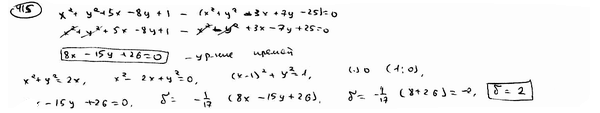 415 x² + y² + 5x - 8y + 1 - (x² + y² - 3x + 7y - 25) = 0
x² + y² + 5x - 8y + 1 - x² - y² + 3x - 7y + 25 = 0
8x - 15y + 26 = 0 - ур-ние прямой
x² + y² = 2x, x² - 2x + y² = 0, (x-1)² + y² = 1, (·) O (1; 0),
- 15y + 26 = 0, δ = -1/17 (8x - 15y + 26), δ = -1/17 (8 + 26) = -2, δ = 2